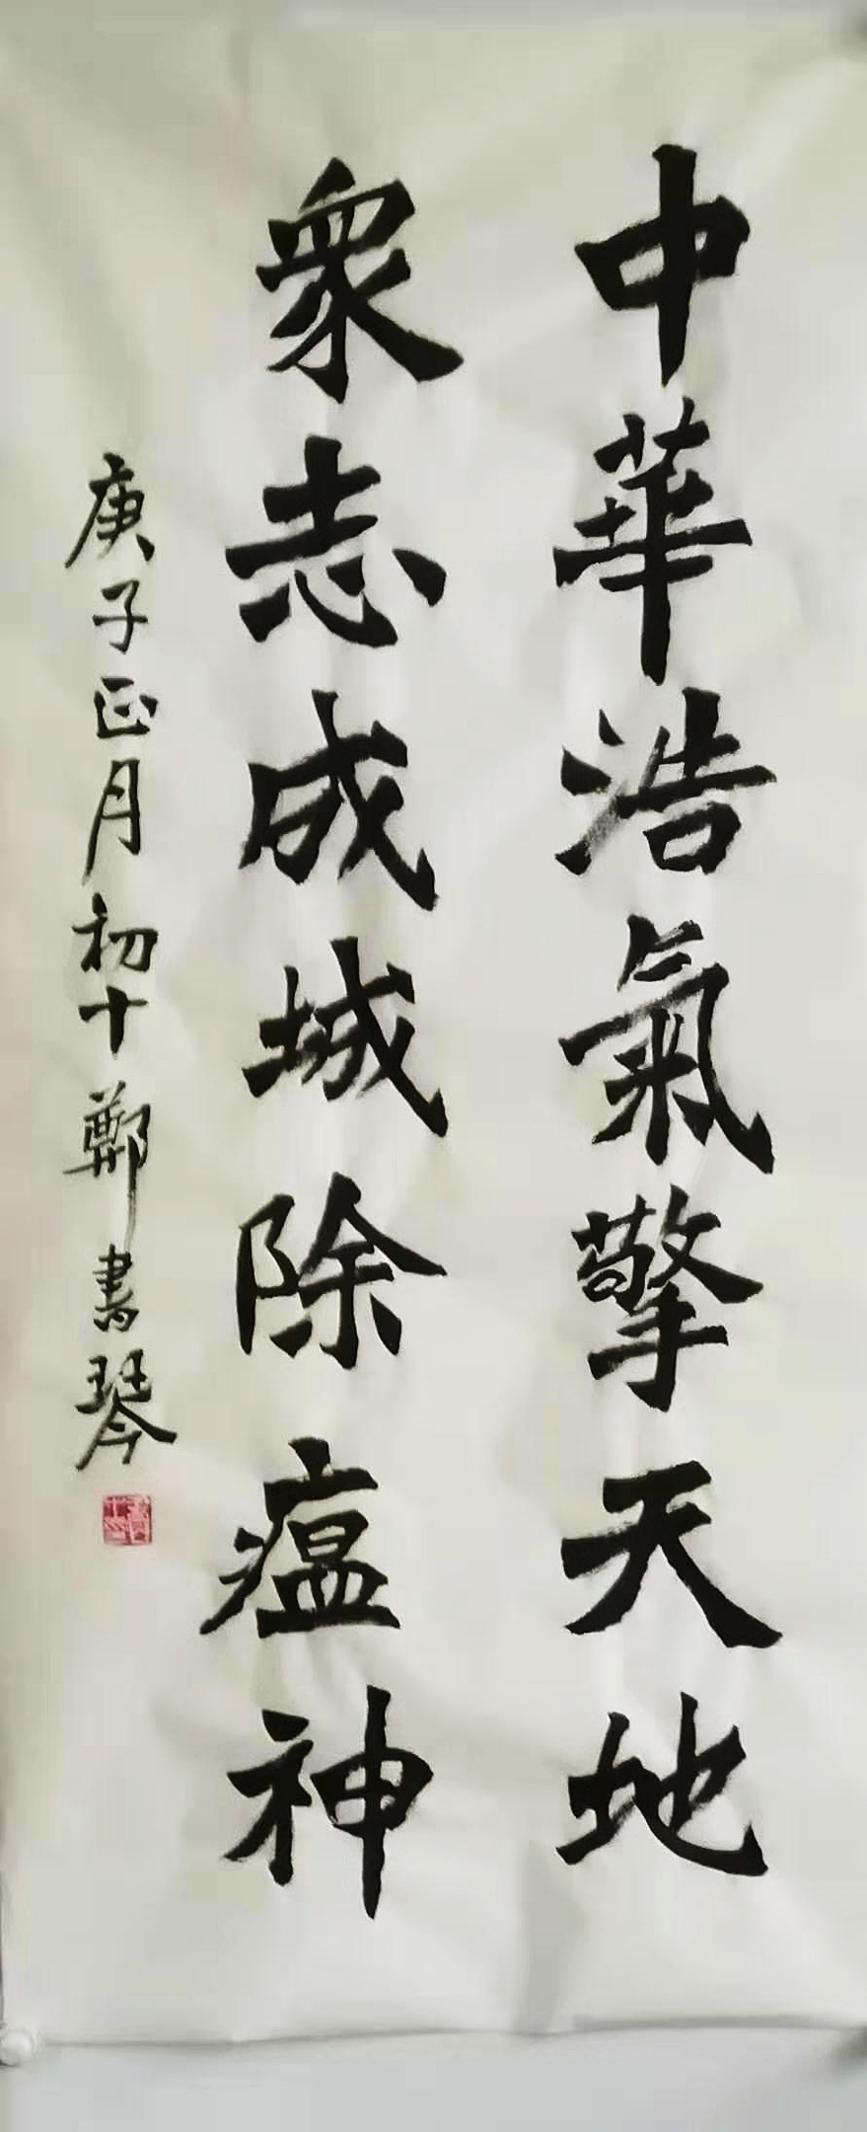 中華浩氣擎天地
衆志成城除瘟神
庚子正月初十鄭書琴